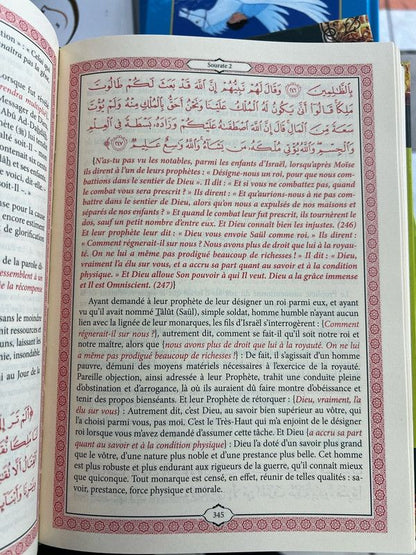 » : « Celui qui
naîtra pas la grâce
Lorsque fut
rendra multiple}
Messager de D
Abū Ad-Daḥdāḥ
contenait six cents
Sourate 2
بِٱلظَّٰلِمِينَ ٢٤٦ وَقَالَ لَهُمْ نَبِيُّهُمْ إِنَّ ٱللَّهَ قَدْ بَعَثَ لَكُمْ طَالُوتَ
مَلِكًا قَالُوٓا۟ أَنَّىٰ يَكُونُ لَهُ ٱلْمُلْكُ عَلَيْنَا وَنَحْنُ أَحَقُّ بِٱلْمُلْكِ مِنْهُ وَلَمْ يُؤْتَ
سَعَةً مِّنَ ٱلْمَالِ قَالَ إِنَّ ٱللَّهَ ٱصْطَفَىٰهُ عَلَيْكُمْ وَزَادَهُۥ بَسْطَةً فِى ٱلْعِلْمِ
وَٱلْجِسْمِ وَٱللَّهُ يُؤْتِى مُلْكَهُۥ مَن يَشَآءُ وَٱللَّهُ وَٰسِعٌ عَلِيمٌ ٢٤٧
{N'as-tu pas vu les notables, parmi les enfants d'Israël, lorsqu'après Moïse
ils dirent à l'un de leurs prophètes : « Désigne-nous un roi, pour que nous com-
battions dans le sentier de Dieu ». Il dit : « Et si vous ne combattez pas, quand
le combat vous sera prescrit ? » Ils dirent : « Et qu'aurions-nous à ne pas com-
battre dans le sentier de Dieu, alors qu'on nous a expulsés de nos maisons et
séparés de nos enfants ? » Et quand le combat leur fut prescrit, ils tournèrent le
dos, sauf un petit nombre d'entre eux. Et Dieu connaît bien les injustes. (246)
Et leur prophète leur dit : « Voici que Dieu vous envoie Saül comme roi. » Ils dirent :
« Comment régnerait-il sur nous ? Nous avons plus de droit que lui à la royau-
té. On ne lui a même pas prodigué beaucoup de richesses ! » Il dit : « Dieu,
vraiment l'a élu sur vous, et a accru sa part quant au savoir et à la condition
physique. » Et Dieu alloue Son pouvoir à qui Il veut. Dieu a la grâce immense
et Il est Omniscient. (247)}
Ayant demandé à leur prophète de leur désigner un roi parmi eux, et ayant
vu qu'il avait nommé Ṭālūt (Saül), simple soldat, homme humble n'ayant aucun
lien avec la lignée de leur monarques, les fils d'Israël s'interrogèrent : {Comment
régnerait-il sur nous ?}, autrement dit, comment se fait-il qu'il soit notre roi et
notre maître, alors que {nous avons plus de droit que lui à la royauté. On ne lui
a même pas prodigué beaucoup de richesses !} : De fait, il s'agissait d'un homme
pauvre, démuni des moyens matériels nécessaires à l'exercice de la royauté.
Pareille objection, ainsi adressée à leur Prophète, trahit une conduite pleine
d'obstination et d'arrogance, là où ils auraient dû faire montre d'obéissance et
tenir des propos bienséants. Et leur Prophète de rétorquer : {Dieu, vraiment, l'a
élu sur vous} : Autrement dit, c'est Dieu, au savoir bien supérieur au vôtre, qui
l'a choisi parmi vous, pas moi. C'est Le Très-Haut qui m'a enjoint de le désigner
roi lorsque vous m'avez demandé d'assumer cette tâche. Et Dieu {a accru sa part
quant au savoir et à la condition physique} : Dieu l'a doté d'un savoir plus grand
que le vôtre, d'une nature plus noble et d'une prestance plus belle. Cet homme
est plus robuste et plus endurant aux rigueurs de la guerre, qu'il connaît mieux
que quiconque. Tout monarque est censé, en effet, réunir de telles qualités : sa-
voir, prestance, force physique et morale.
345